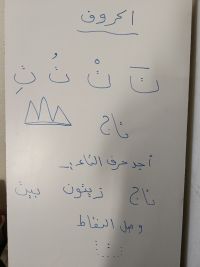 الحروف
تَ تْ تُ تِ
تاج
أجد حرف التاء:
تاج زيتون بيت
وصل النقاط